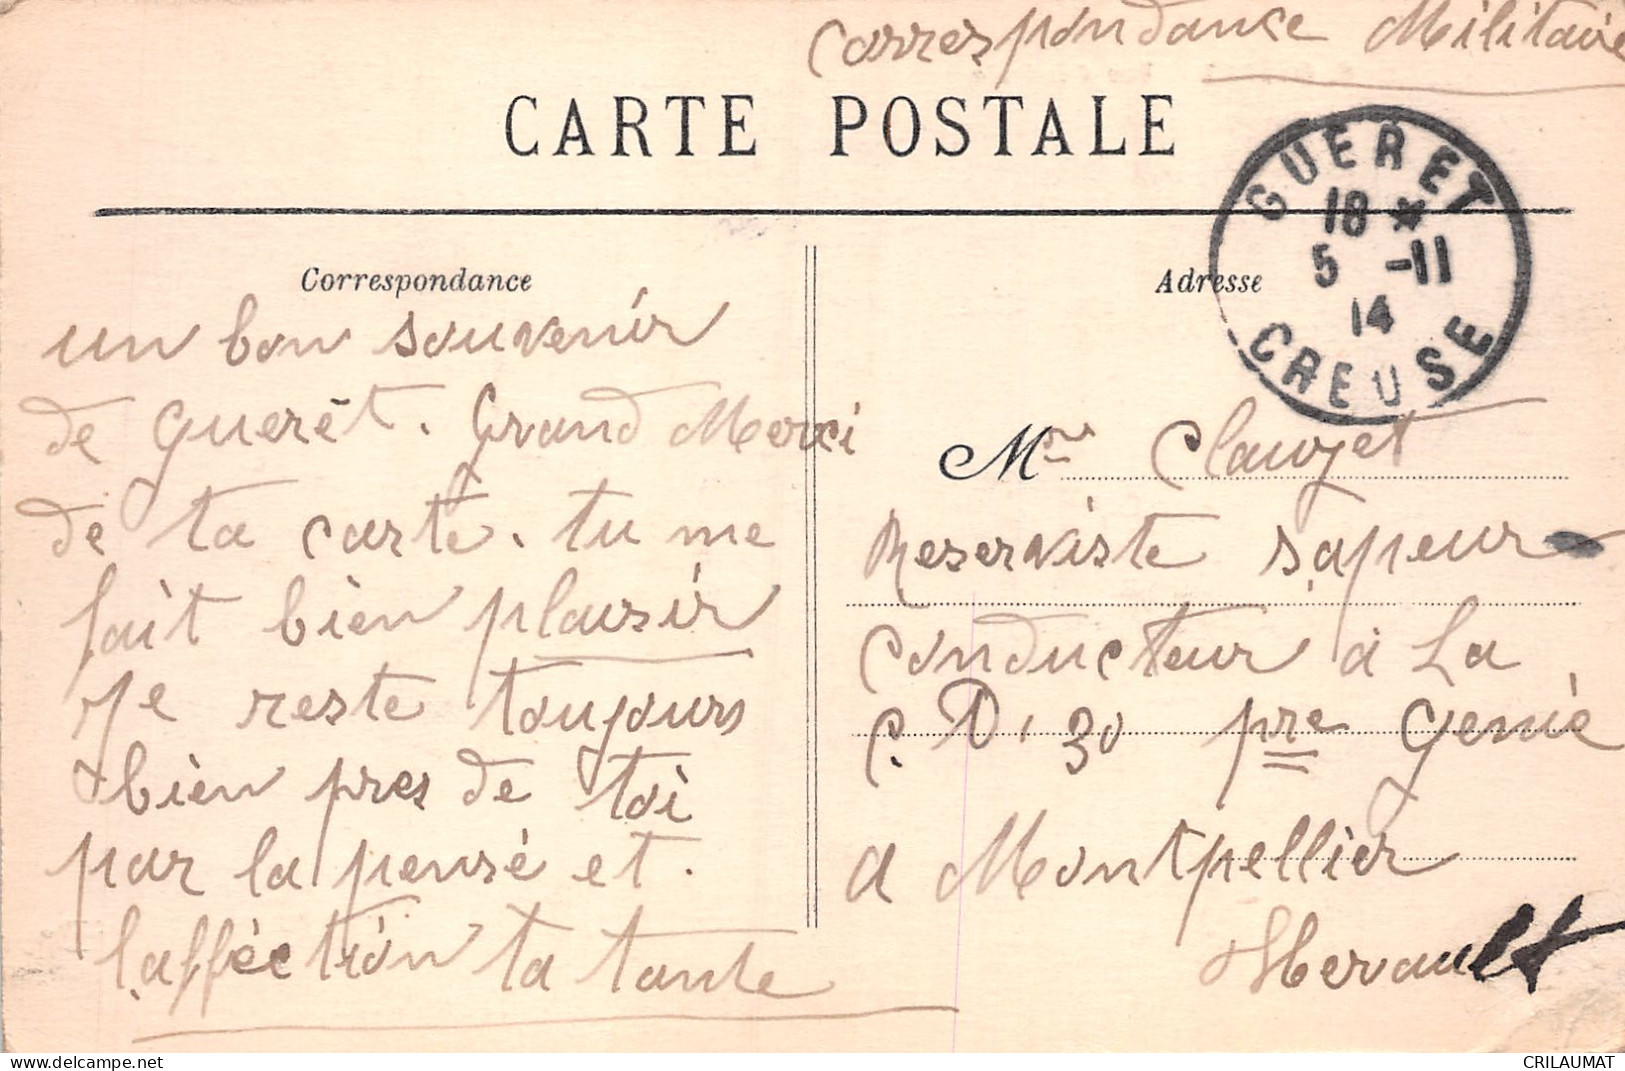 correspondance Militaire
CARTE POSTALE
GUERET
18 *
5 -11
14
CREUSE
Correspondance
Adresse
un bon souvenir
de Guerèt. Grand Merci
de ta carte. tu me
fait bien plaisir
Je reste toujours
bien pres de toi
par la pensé et.
l'affèction ta tante
Mr
Reserviste sapeur
conducteur a La
C. D. 30 pre Genie
a Montpellier
Herault
delcampe.net
CRILAUMAT